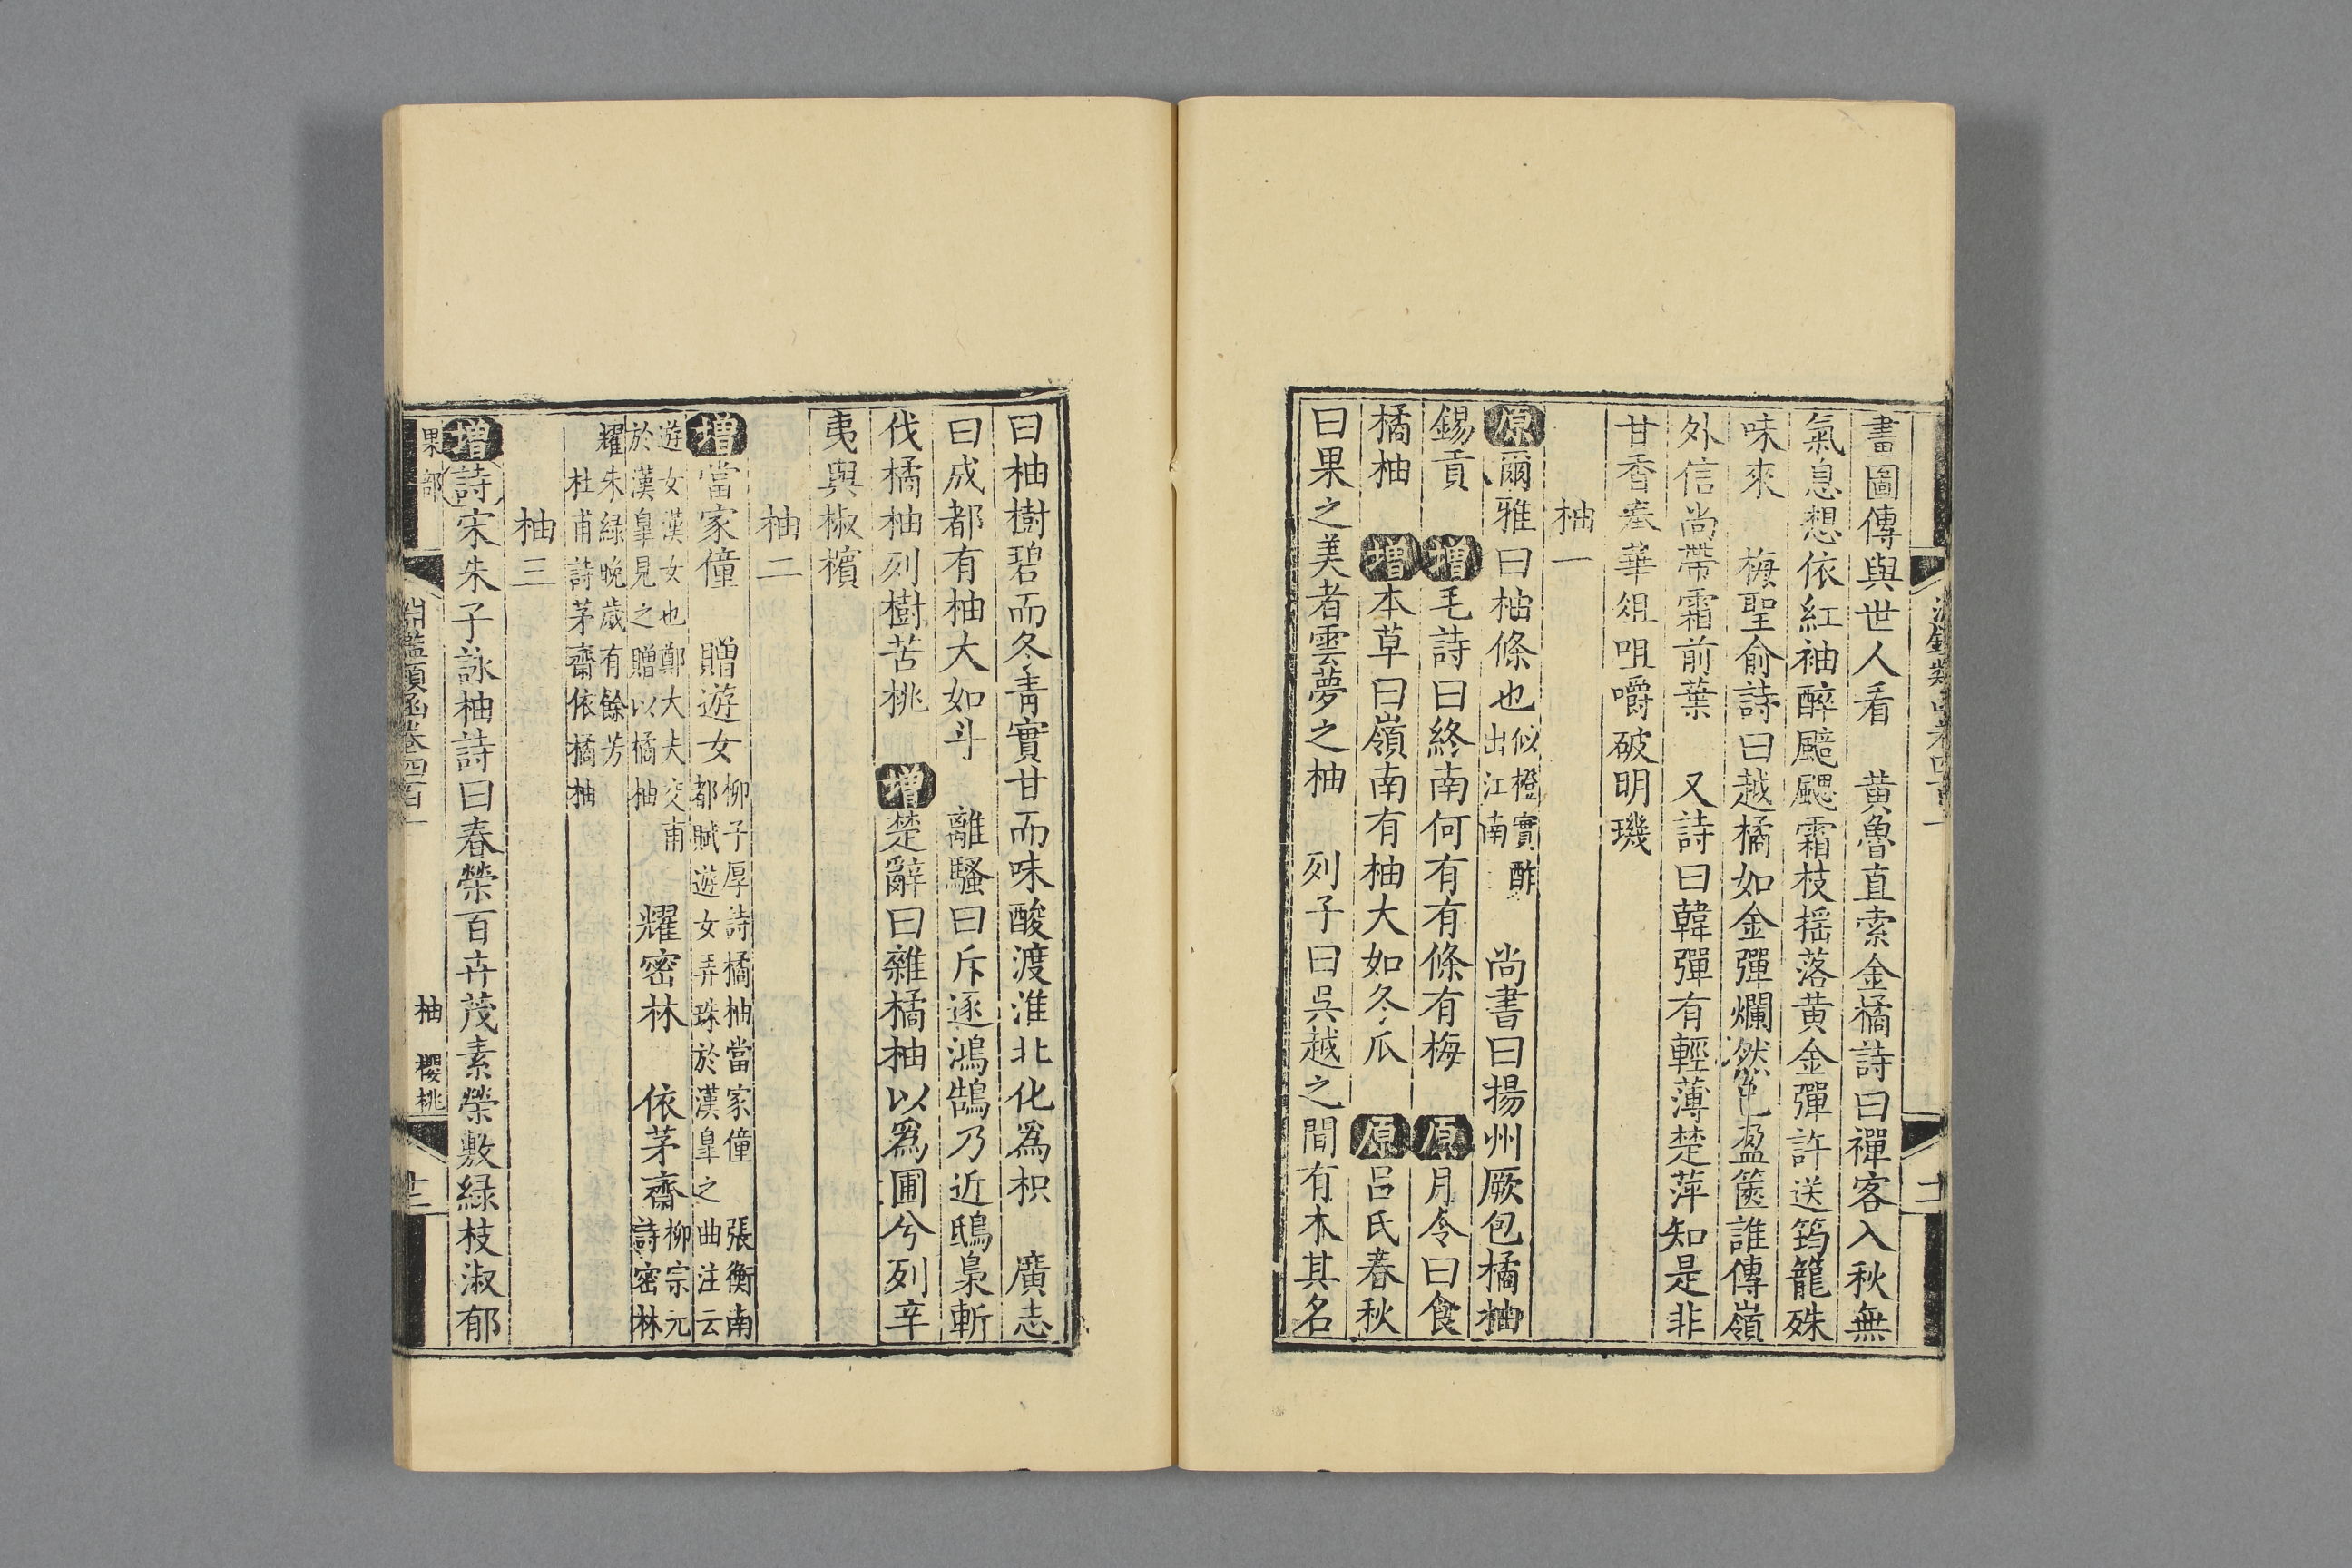 畫圖傳與世人看　黄魯直索金橘詩曰禪客入秋無
氣息想依紅袖醉颸颸霜枝揺落黄金彈許送筠籠殊
味來　梅聖俞詩曰越橘如金彈爛然色盈篋誰傳嶺
外信尚帶霜前葉　又詩曰韓彈有輕薄楚萍知是非
甘香塞華俎咀嚼破明璣
柚一
原爾雅曰柚條也似橙實酢出江南　尚書曰揚州厥包橘柚
錫貢　增毛詩曰終南何有有條有梅　原月令曰食
橘柚　增本草曰嶺南有柚大如冬瓜　原呂氏春秋
曰果之美者雲夢之柚　列子曰吳越之間有木其名
曰柚樹碧而冬青實甘而味酸渡淮北化爲枳　廣志
曰成都有柚大如斗　離騷曰斥逐鴻鵠乃近鴟梟斬
伐橘柚列樹苦桃　增楚辭曰雜橘柚以爲圃兮列辛
夷與椒檳
柚二
增當家僮　贈遊女柳子厚詩橘柚當家僮　張衡南都賦遊女弄珠於漢皐之曲注云
遊女漢女也鄭大夫交甫於漢皐見之贈以橘柚　耀密林　依茅齋柳宗元詩密林
耀朱綠晚歲有餘芳杜甫詩茅齋依橘柚
柚三
增詩宋朱子詠柚詩曰春榮百卉茂素榮敷緑枝淑郁
果部　淵鑑類函卷四百一　柚　櫻桃